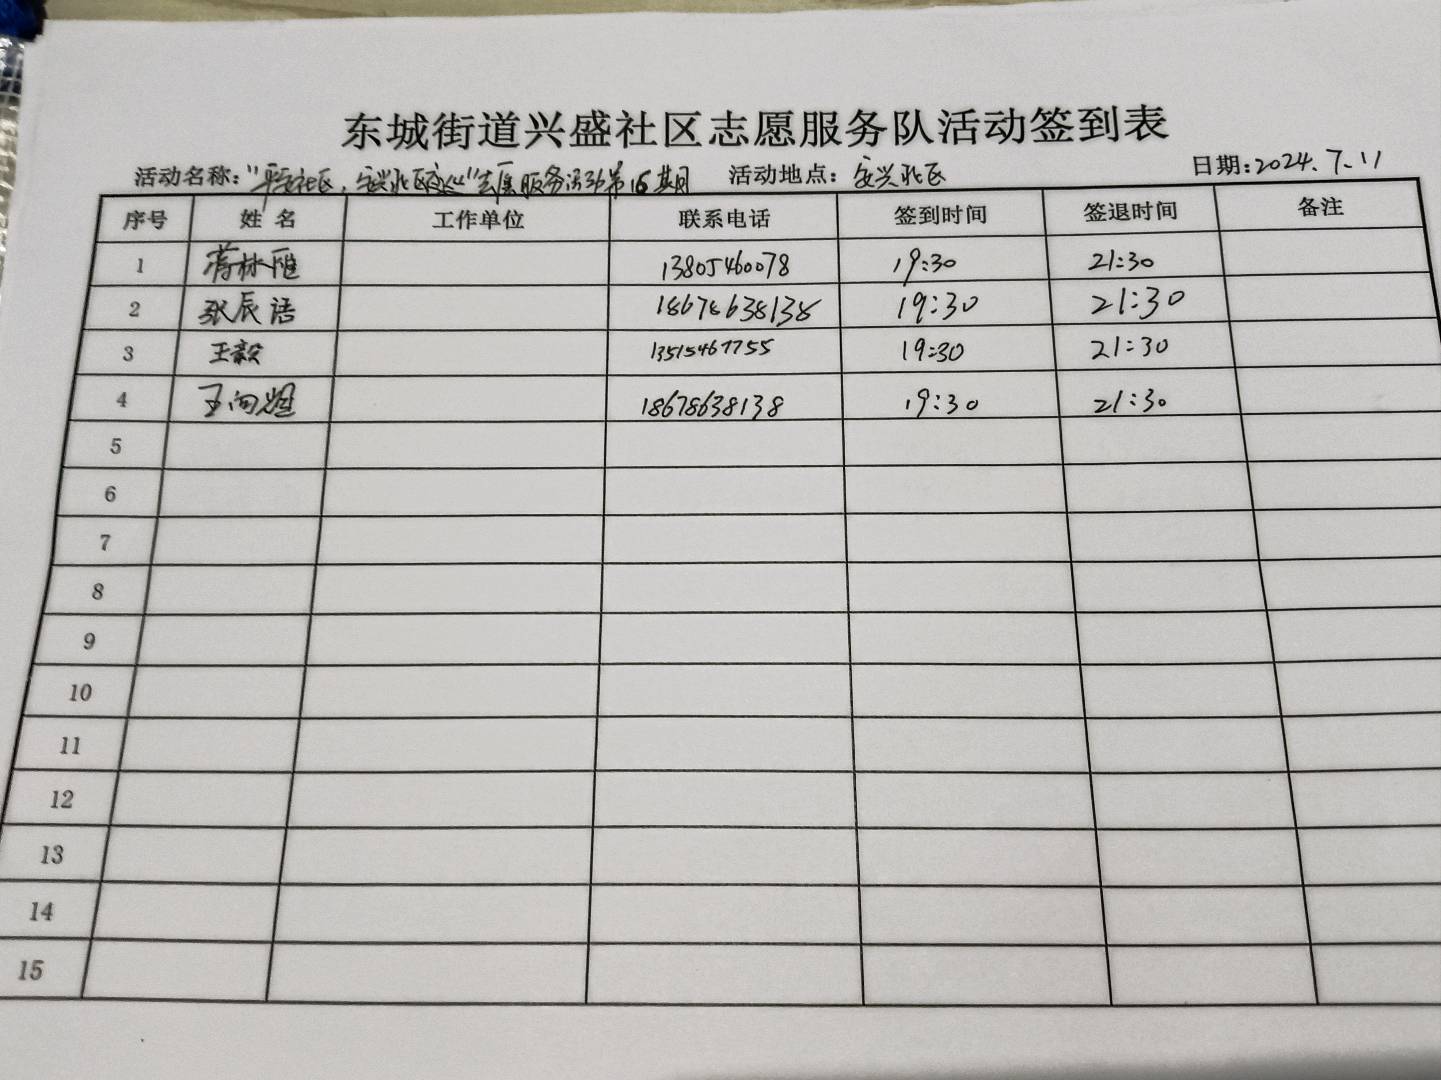 东城街道兴盛社区志愿服务队活动签到表
活动名称:"平安社区,安兴北区夜巡"志愿服务活动第16期 活动地点:安兴北区 日期:2024.7.11
序号 姓名 工作单位 联系电话 签到时间 签退时间 备注
1 13805460078 19:30 21:30
2 张辰语 18678638138 19:30 21:30
3 王毅 13515467755 19:30 21:30
4 18678638138 19:30 21:30
5
6
7
8
9
10
11
12
13
14
15